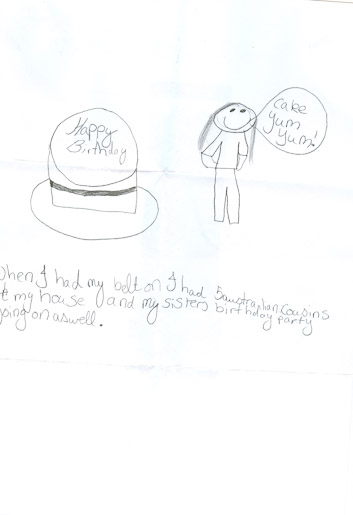 Happy
Birthday
Cake
yum
Yum!
When I had my belt on I had 5 australian cousins
at my house and my sisters birthday party
going on aswell.